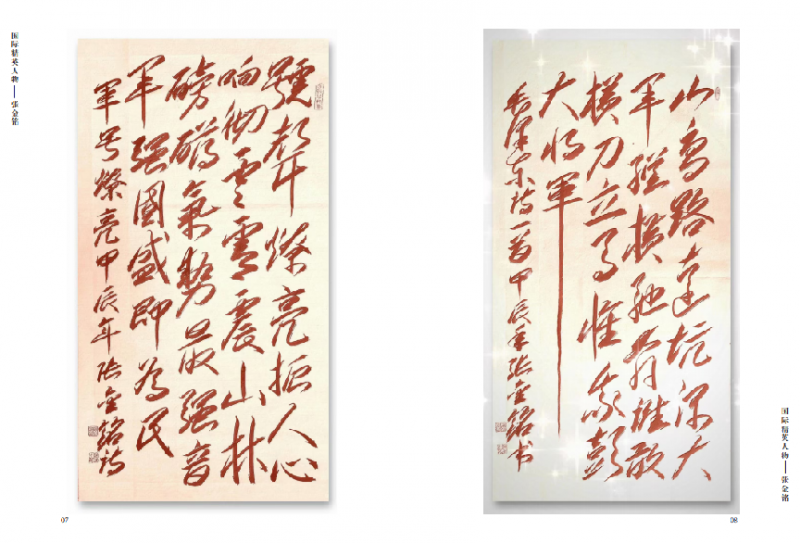 国际精英人物——张金铭
號聲燎亮振人心
响彻雲霄震山林
磅礴氣势最强音
军强國盛即為民
军号燎亮甲辰年张金铭诗
07
山高路远坑深大
军纵横驰奔谁敢
横刀立马惟我彭
大将军
毛泽东诗一首甲辰年张金铭书
国际精英人物——张金铭
08